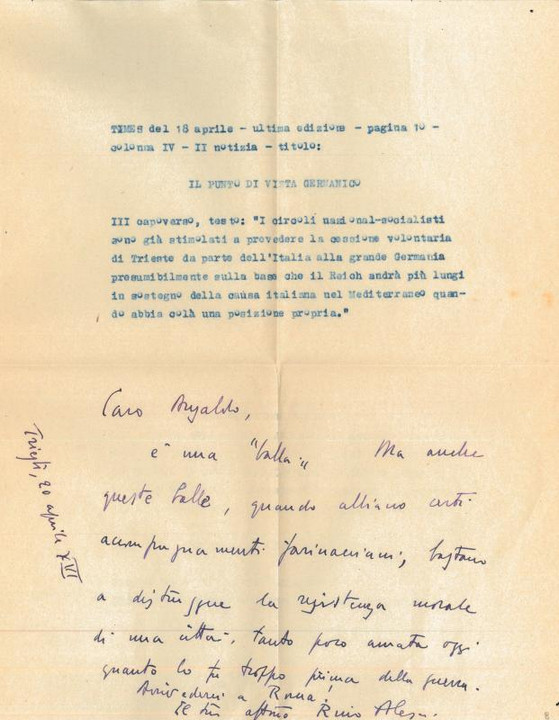 TIMES del 18 aprile - ultima edizione - pagina 10 -
colonna IV - II notizia - titolo:
IL PUNTO DI VISTA GERMANICO
III capoverso, testo: "I circoli nazional-socialisti
sono già stimolati a provedere la cessione volontaria
di Trieste da parte dell'Italia alla grande Germania
presumibilmente sulla base che il Reich andrà più lungi
in sostegno della causa italiana nel Mediterraneo quan-
do abbia colà una posizione propria."
Caro Ansaldo,
è una "balla". Ma anche
queste balle, quando abbiano certi
accompagnamenti farinacciani, bastano
a distruggere la resistenza morale
di una città, tanto poco amata oggi
quanto lo fu troppo prima della guerra.
Arrivederci a Roma.
Il tuo aff.mo Rino Alessi
Trieste, 20 aprile XVI